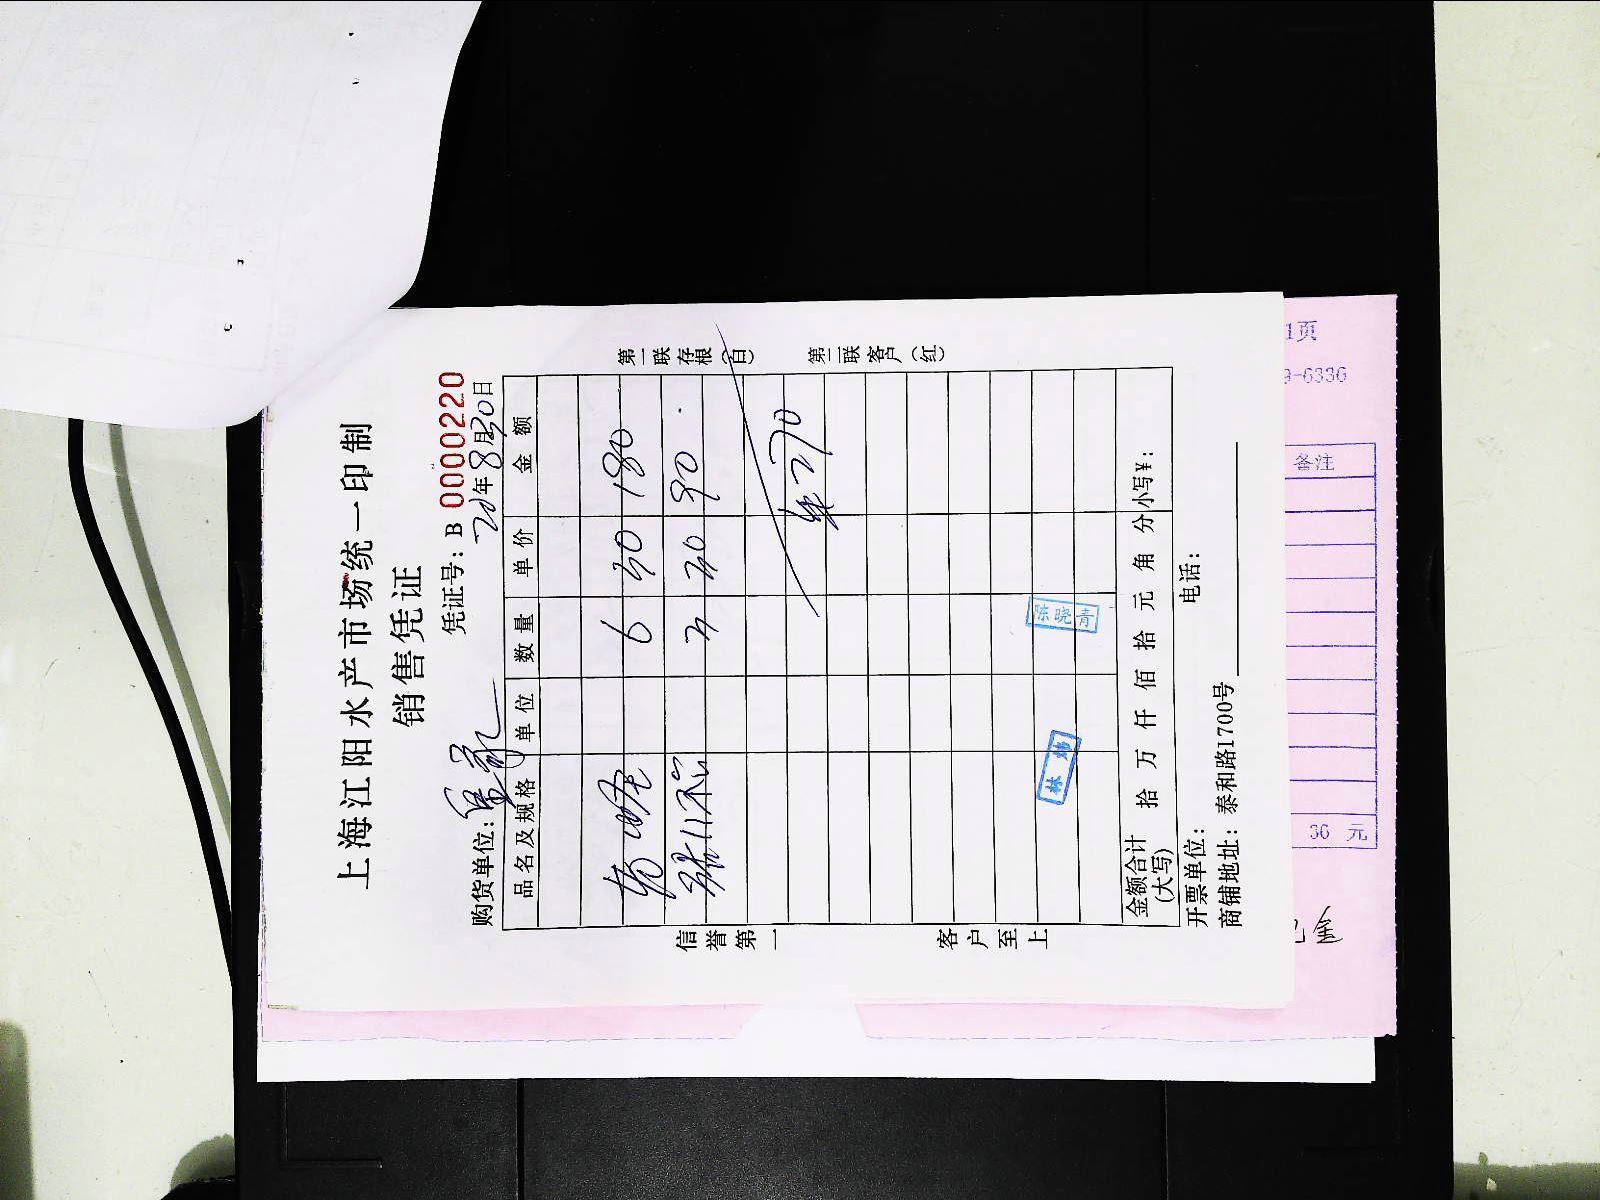 上海江阳水产市场统一印制
销售凭证
凭证号：B 0000220
购货单位：
年8月30日
品名及规格 单位 数量 单价 金额
6 30 180
3 30 90
270
陈晓青
林
金额合计(大写) 拾 万 仟 佰 拾 元 角 分 小写¥：
开票单位： 电话：
商铺地址：泰和路1700号
信誉第一 客户至上
第一联存根（白） 第二联客户（红）
1页
9-6336
备注
36 元
金